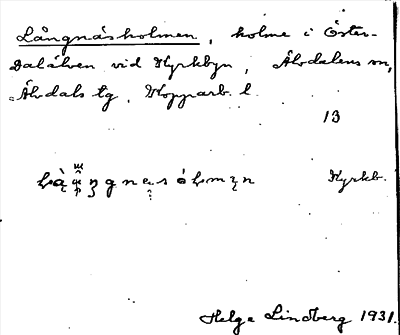 Långnäsholmen, holme i Öster-
Dalälven vid Kyrkbyn, Älvdalens sn,
Älvdals tg, Kopparb. l.
13
Kyrkb.
Helge Lindberg 1931.